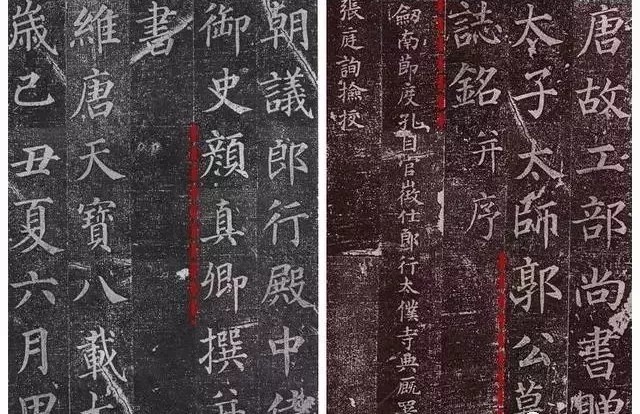 朝議郎行殿中侍
御史顏真卿撰并
書
維唐天寶八載太
歲己丑夏六月甲
唐故工部尚書贈
太子太師郭公墓
誌銘并序
劔南節度孔目官徵仕郎行太僕寺典厩署
張庭詢撿挍